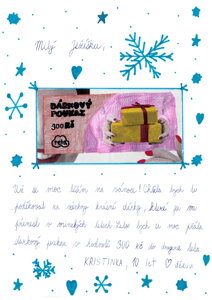 Milý Ježíšku,
DÁRKOVÝ
POUKAZ
300 Kč
Už se moc těším na vánoce! Chtěla bych ti
poděkovat za všechny krásné dárky, které jsi mi
přinesl v minulých letech. Letos bych si moc přála
dárkový poukaz v hodnotě 300 Kč do
KRISTINKA, 10 let